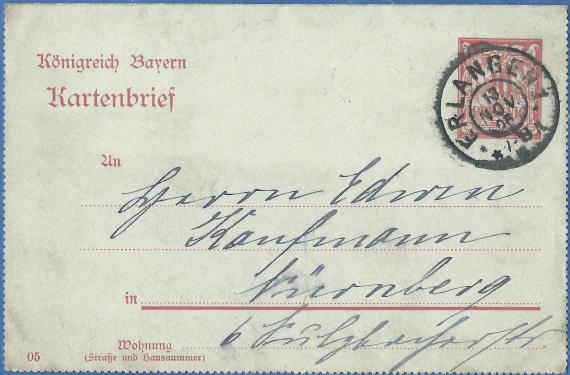 Königreich Bayern
Kartenbrief
ERLANGEN 1
13 NOV.
05
An
Herrn Edwin
Kaufmann
in Nürnberg
Wohnung 6 Sulzbacherstr.
05 (Straße und Hausnummer)